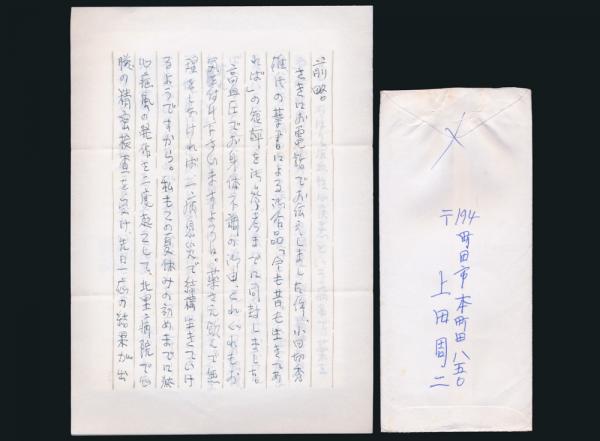 前略。
さきにお電話でお伝えしました件、小田切秀
雄氏の葉書による御作品「今も昔も生きてあ
れば」の短評を御参考までに同封しました。
高血圧でお身体不調の御由、くれぐれもお
気を付け下さいますように。薬さえ飲んで無
理をしなければ一病息災で結構生きていけ
るようですから。私もこの夏休みの初めまでに
痛風の発作を二度起こして、北里病院で
の精密検査を受け、先日一応の結果が出
〒194
町田市本町田八五〇
上田周二